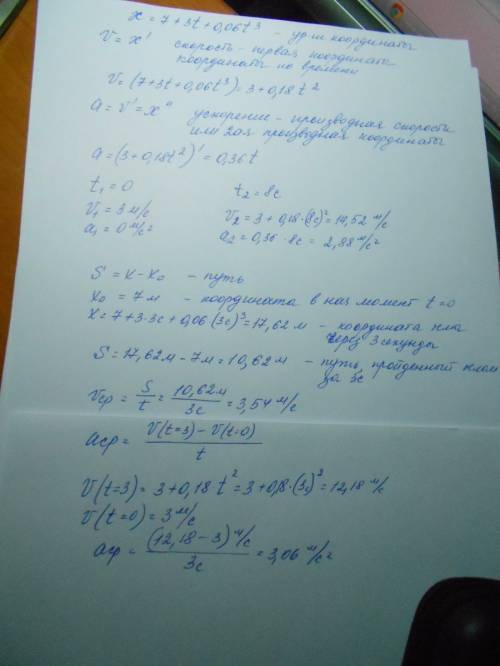 x = 7 + 3t + 0,06t³ - ур-ие координаты
v = x' скорость - первая
координаты по времени
v = (7+3t+0,06t³) = 3 + 0,18t²
a = v' = x" ускорение - производная скорости
или 2ая производная координаты
a = (3 + 0,18t²)' = 0,36t
t₁ = 0 t₂ = 8c
v₁ = 3 м/с v₂ = 3 + 0,18·(8c)² = 14,52 м/с
a₁ = 0 м/с² a₂ = 0,36 · 8c = 2,88 м/с²
S = x - x₀ - путь
x₀ = 7м - координата в нач момент t = 0
x = 7 + 3·3c + 0,06(3c)³ = 17,62м - координата тела
через 3 секунды
S = 17,62м - 7м = 10,62м - путь, пройденный телом
за 3с
vср = S/t = 10,62м/3с = 3,54 м/с
aср = V(t=3) - V(t=0)/t
V(t=3) = 3 + 0,18t² = 3 + 0,18·(3c)² = 12,18 м/с
V(t=0) = 3 м/с
aср = (12,18 - 3) м/с/3c = 3,06 м/с²